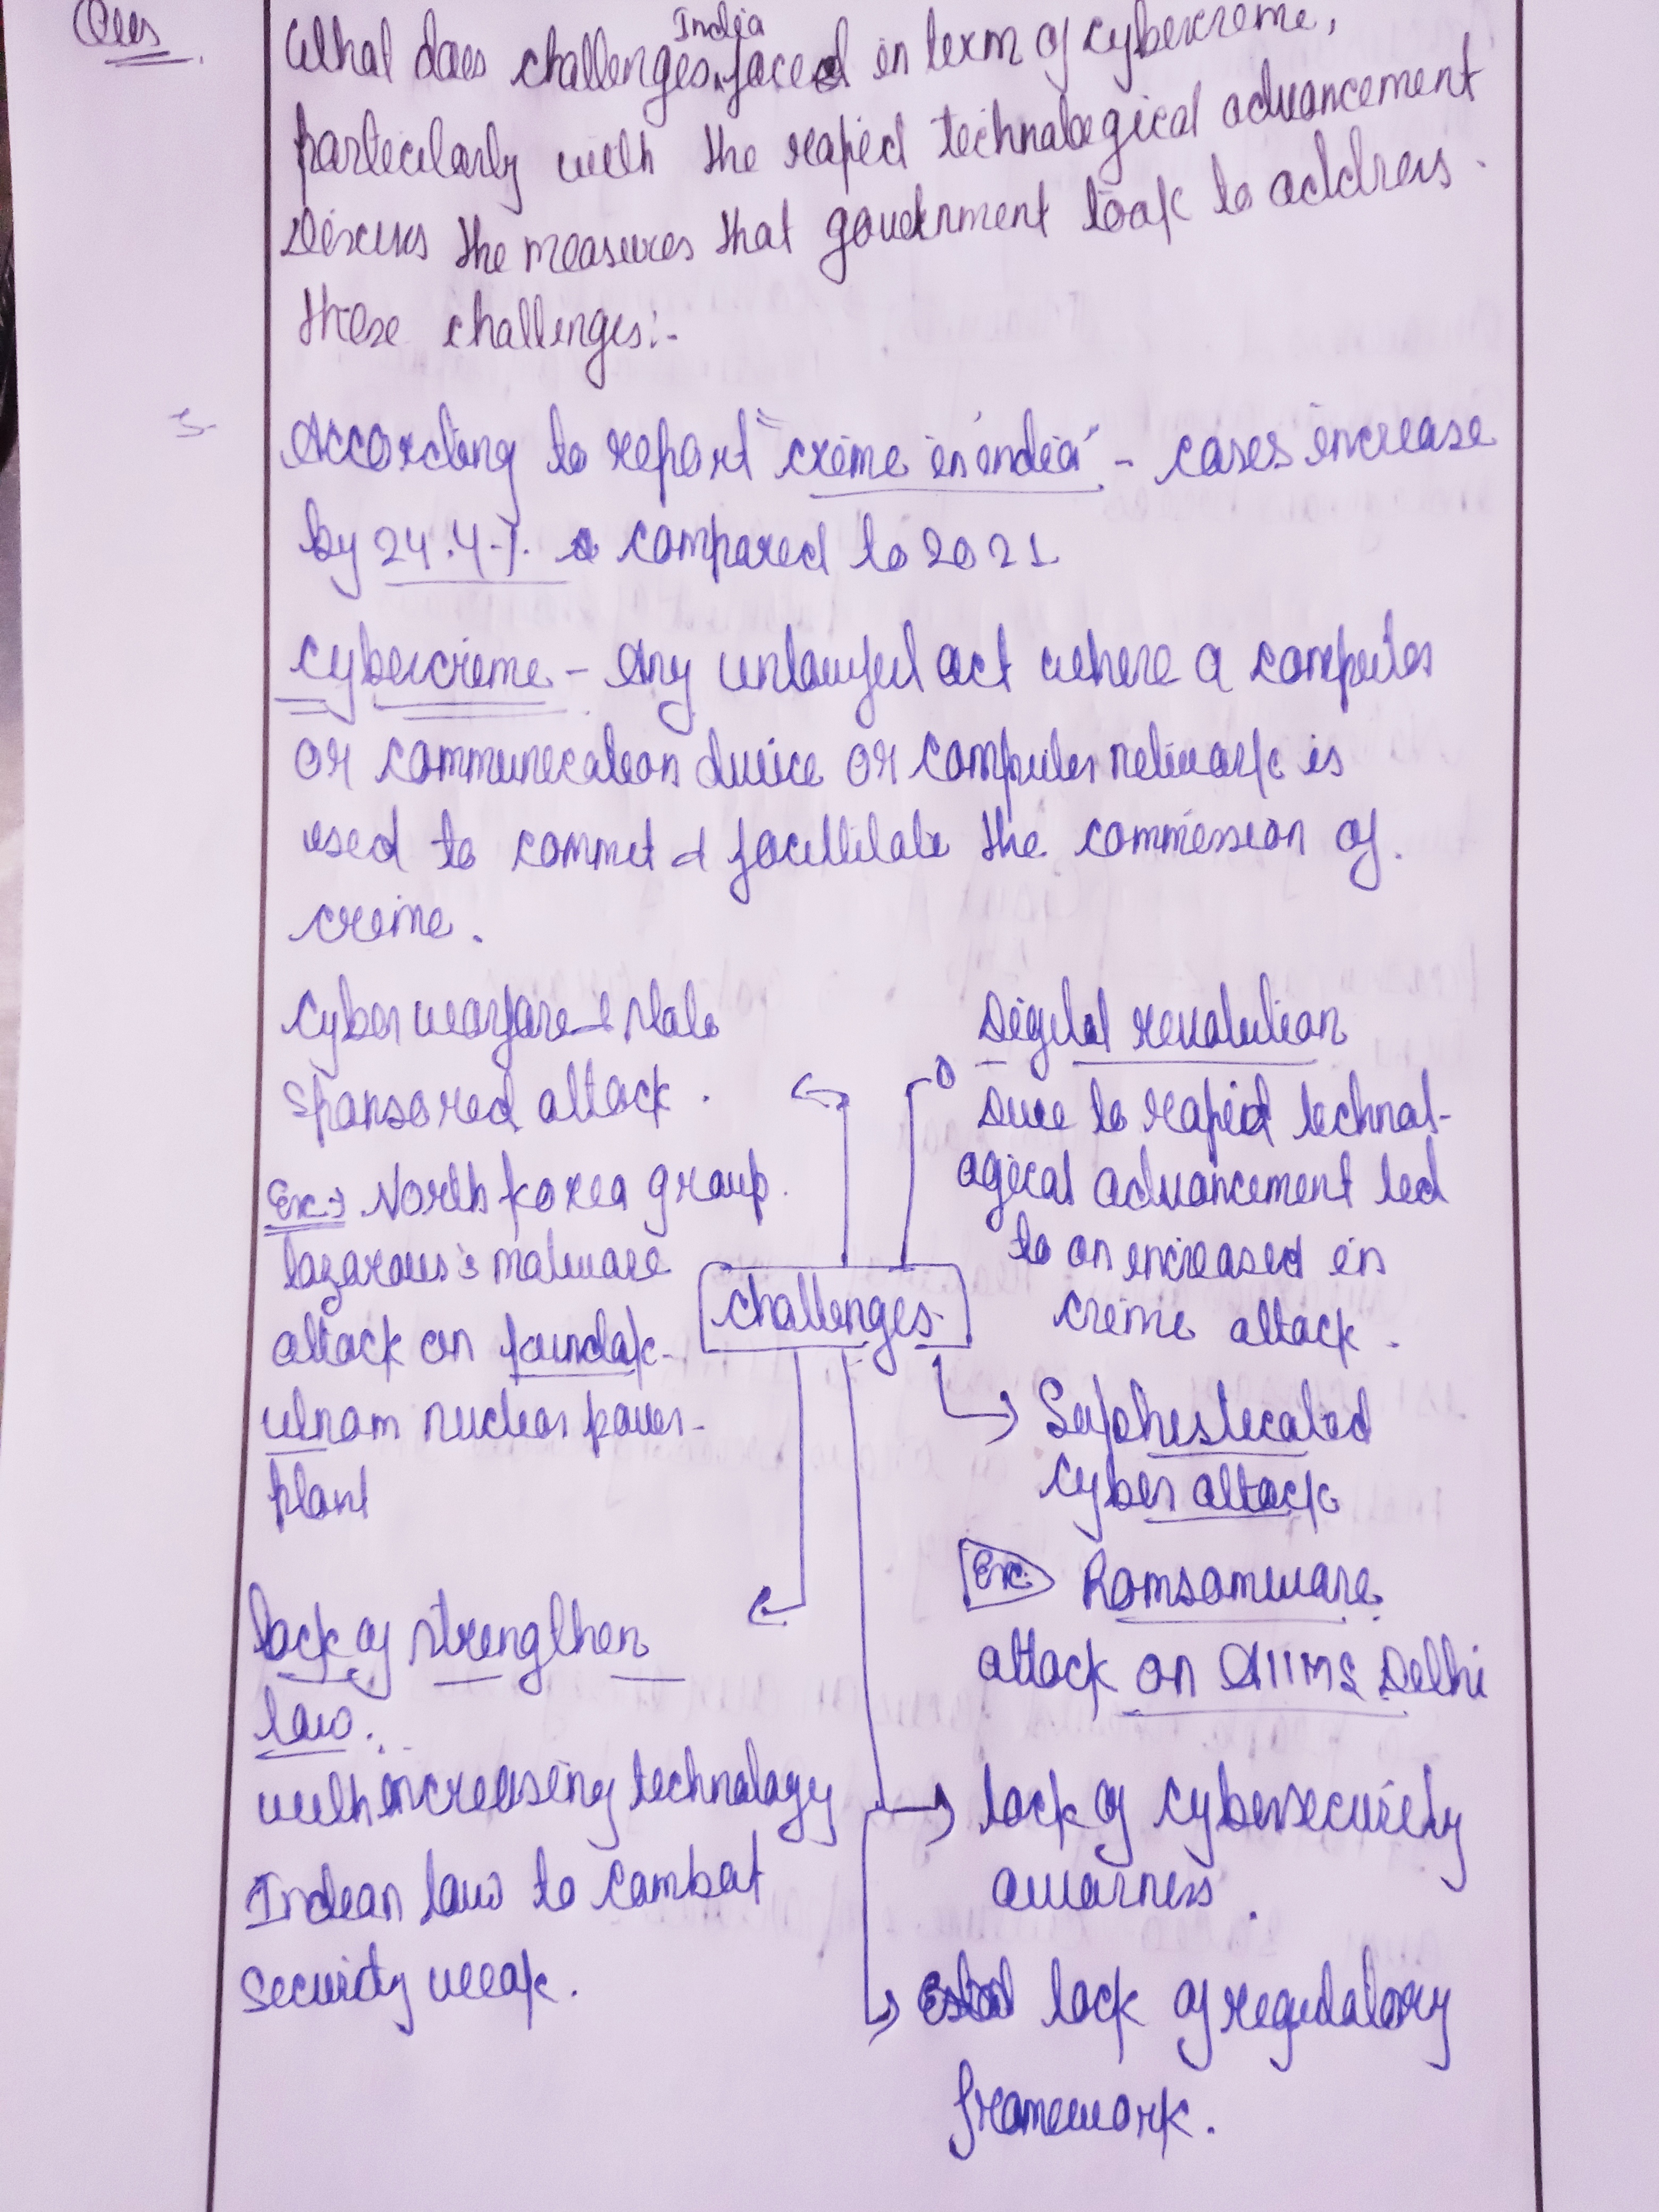 Ques
What does challenges India faced in term of cybercrime,
particularly with the rapid technological advancement
Discuss the measures that government took to address
these challenges:-
According to report "crime in india" - cases increase
by 24.4% compared to 2021
Cybercrime - Any unlawful act where a computer
or communication device or computer network is
used to commit & facillitate the commission of
crime.
Cyber warfare & state
sponsored attack.
Ex:→ North Korea group
lazarous's malware
attack on kundak-
ulnam nuclear power-
plant
Digital revolution
Due to rapid technol-
ogical advancement led
to an increased in
crime attack.
Challenges
Sophisticated
cyber attack
Ex: Ramsomware
attack on AIIMS Delhi
lack of strengthen
law.
with increasing technology
Indian law to combat
security weak.
lack of cybersecurity
awarness.
lack of regulatory
framework.